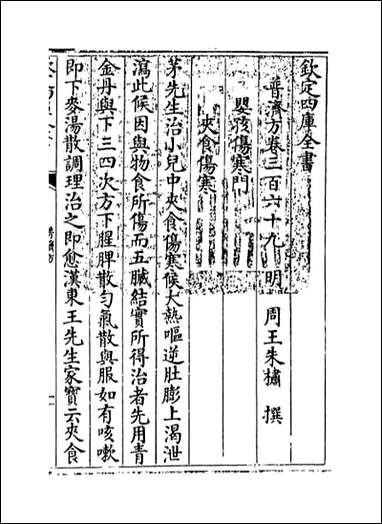 欽定四庫全書
普濟方卷三百六十九 明 周王朱橚 撰
嬰孩傷寒門
夾食傷寒
茅先生治小兒中夾食傷寒候大熱嘔逆肚膨上渴泄
瀉此候因與物食所傷而五臟結實所得治者先用青
金丹與下三四次方下腥脾散勻氣散與服如有咳嗽
即下麥湯散調理治之即愈漢東王先生家寶云夾食
普濟方